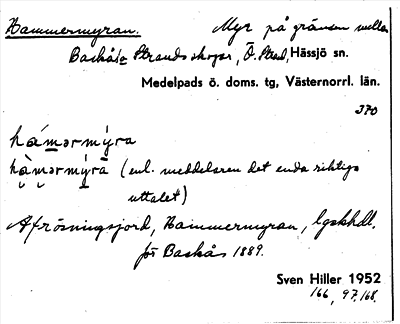 Hammermyran. Myr på gränsen mellan
Backås o Strands skogar, Ö. Strand, Hässjö sn.
Medelpads ö. doms. tg, Västernorrl. län.
370
hámərmýra
hàmərmýrā (enl. meddelaren det enda riktiga
uttalet)
Afrösningsjord, Hammermyran, lgskhdl.
för Backås 1889.
Sven Hiller 1952
166, 97, 168.